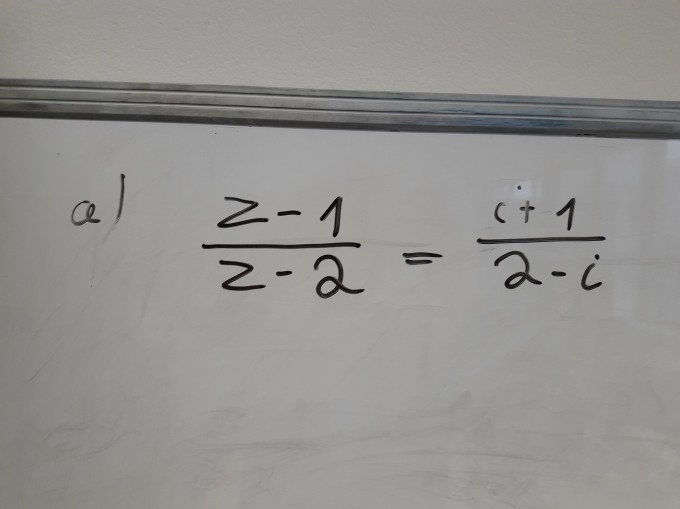 a) z-1/z-2 = i+1/2-i